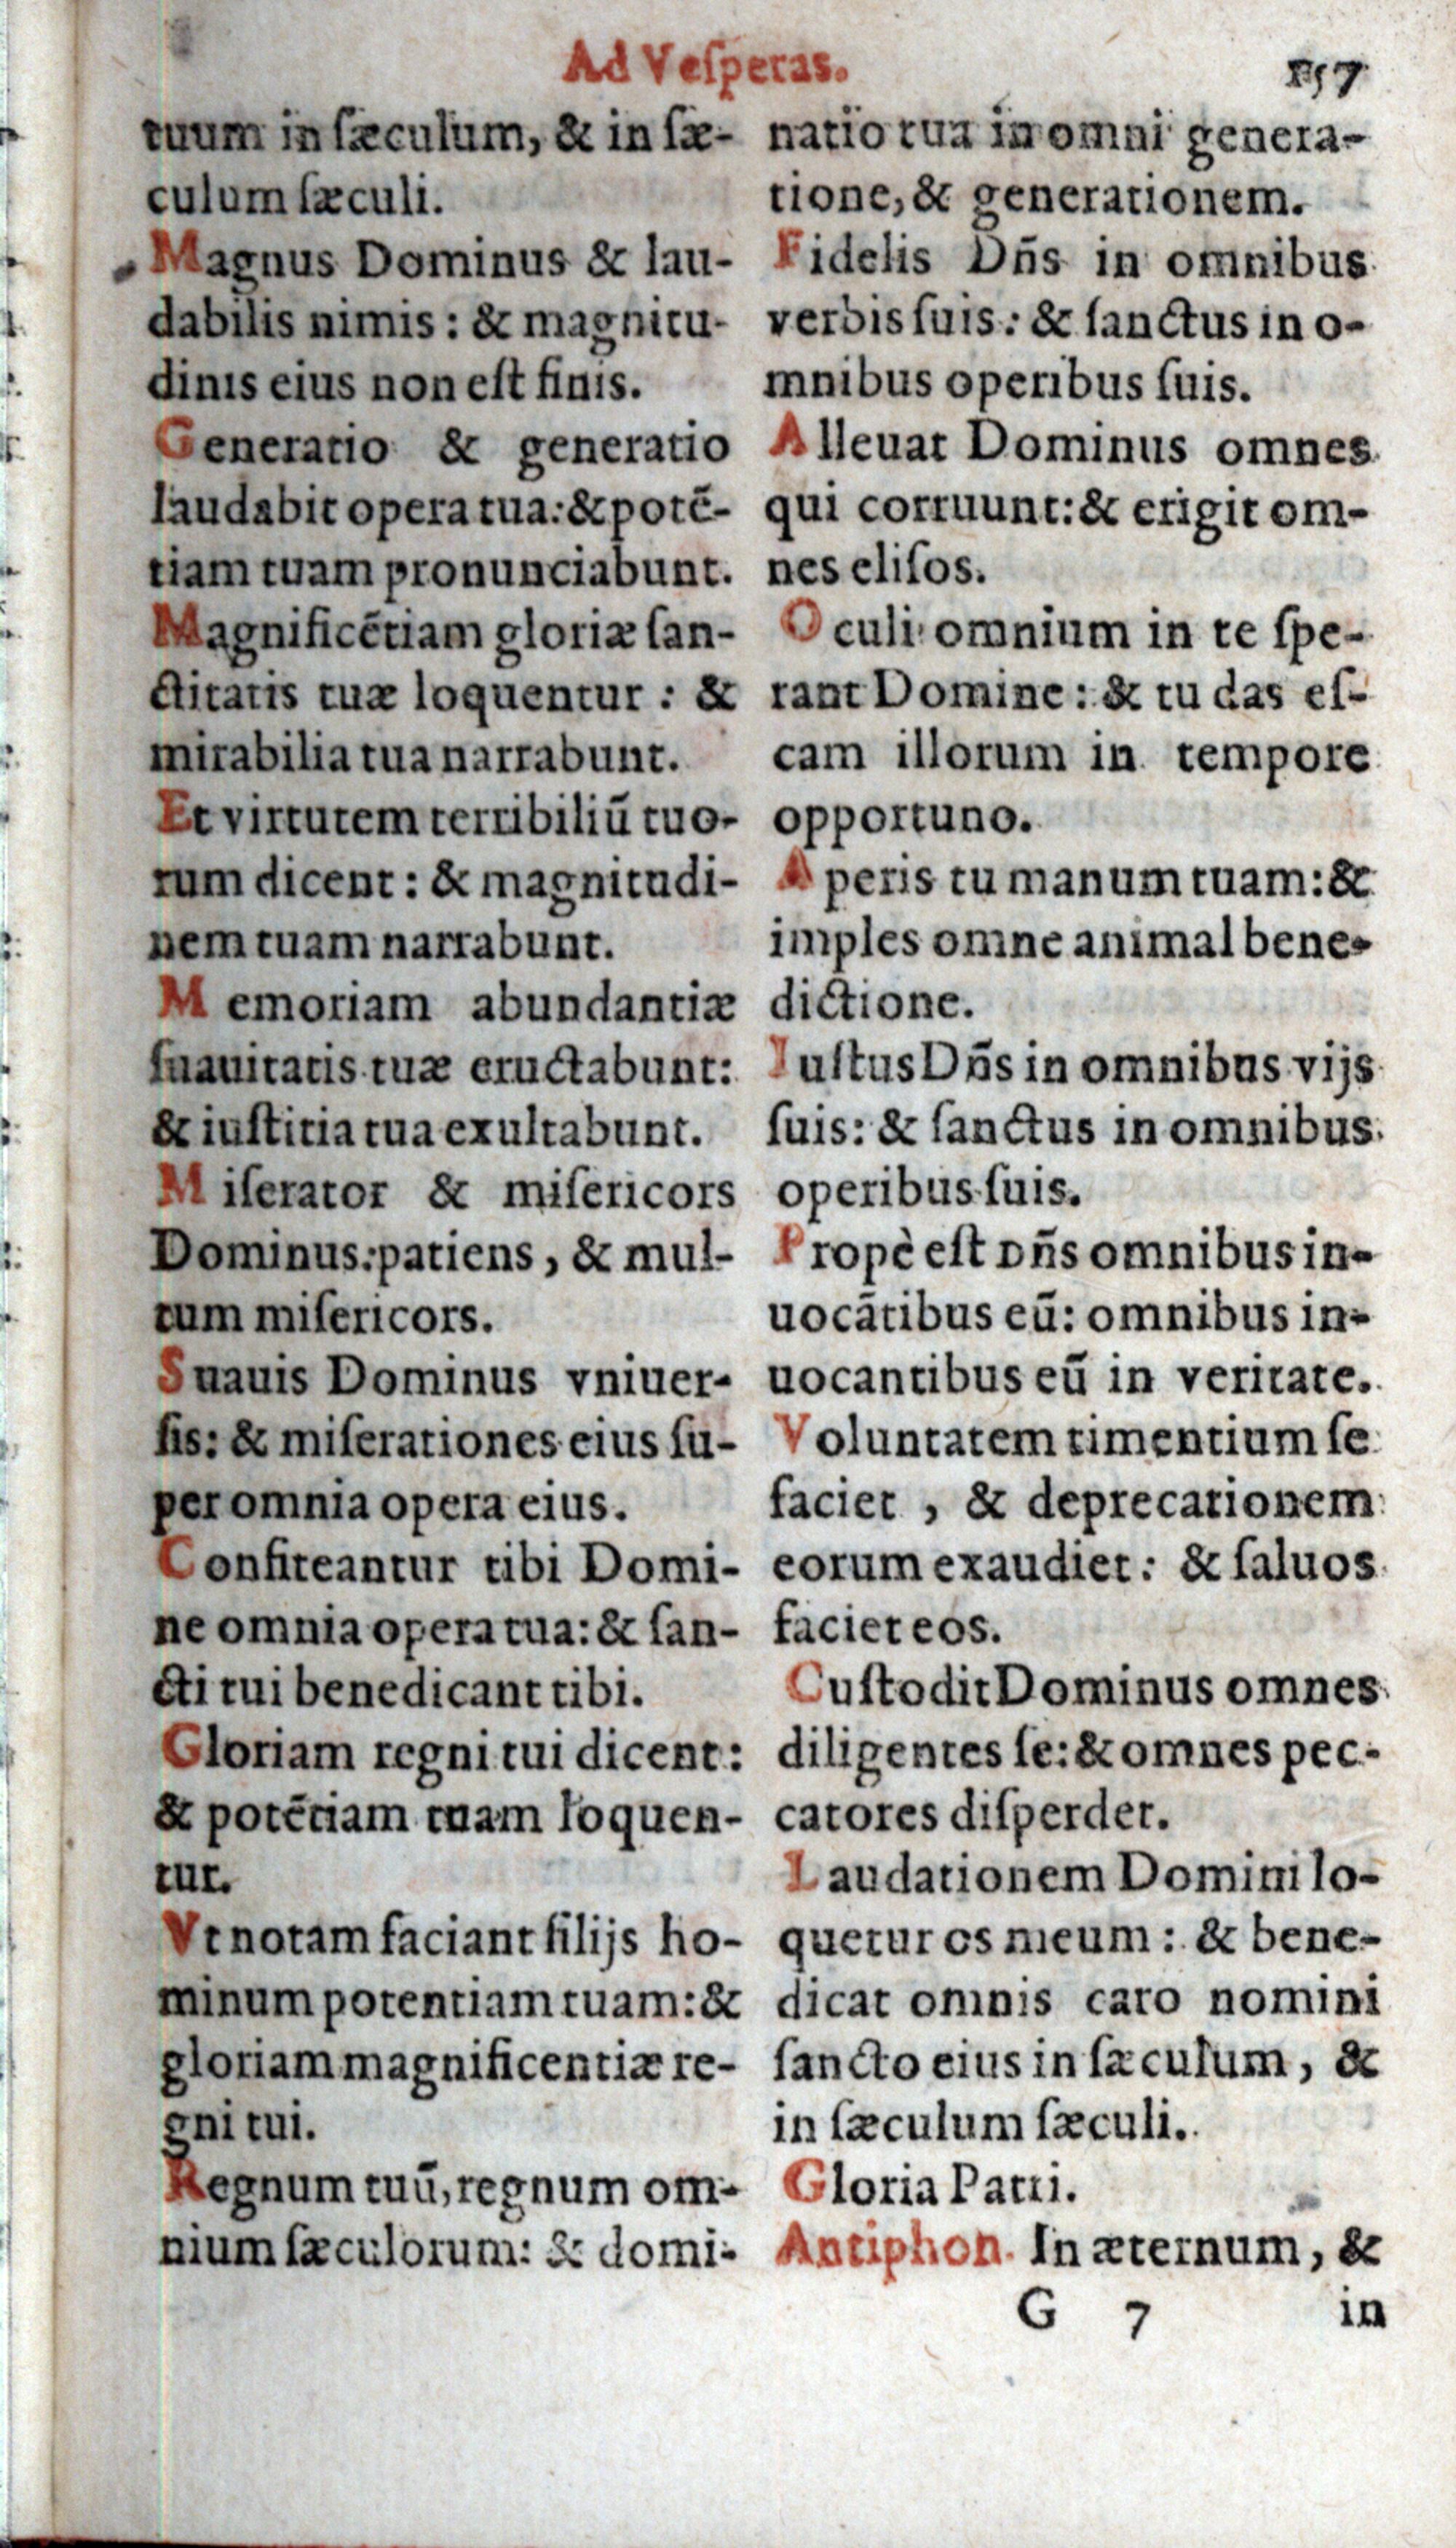 Ad Veſperas.
157
tuum in ſæculum, & in ſæ-
culum ſæculi.
Magnus Dominus & lau-
dabilis nimis: & magnitu-
dinis eius non eſt finis.
Generatio & generatio
laudabit opera tua: & potē-
tiam tuam pronunciabunt.
Magnificētiam gloriæ ſan-
ctitatis tuæ loquentur: &
mirabilia tua narrabunt.
Et virtutem terribiliū tuo-
rum dicent: & magnitudi-
nem tuam narrabunt.
Memoriam abundantiæ
ſuauitatis tuæ eructabunt:
& iuſtitia tua exultabunt.
Miſerator & miſericors
Dominus: patiens, & mul-
tum miſericors.
Suauis Dominus vniuer-
ſis: & miſerationes eius ſu-
per omnia opera eius.
Confiteantur tibi Domi-
ne omnia opera tua: & ſan-
cti tui benedicant tibi.
Gloriam regni tui dicent:
& potētiam tuam loquen-
tur.
Vt notam faciant filijs ho-
minum potentiam tuam: &
gloriam magnificentiæ re-
gni tui.
Regnum tuū, regnum om-
nium ſæculorum: & domi-
natio tua in omni genera-
tione, & generationem.
Fidelis Dñs in omnibus
verbis ſuis: & ſanctus in o-
mnibus operibus ſuis.
Alleuat Dominus omnes
qui corruunt: & erigit om-
nes eliſos.
Oculi omnium in te ſpe-
rant Domine: & tu das eſ-
cam illorum in tempore
opportuno.
Aperis tu manum tuam: &
imples omne animal bene-
dictione.
Iuſtus Dñs in omnibus vijs
ſuis: & ſanctus in omnibus
operibus ſuis.
Propè eſt Dñs omnibus in-
uocātibus eū: omnibus in-
uocantibus eū in veritate.
Voluntatem timentium ſe
faciet, & deprecationem
eorum exaudiet: & ſaluos
faciet eos.
Cuſtodit Dominus omnes
diligentes ſe: & omnes pec-
catores diſperdet.
Laudationem Domini lo-
quetur os meum: & bene-
dicat omnis caro nomini
ſancto eius in ſæculum, &
in ſæculum ſæculi.
Gloria Patri.
Antiphon. In æternum, &
G 7
in